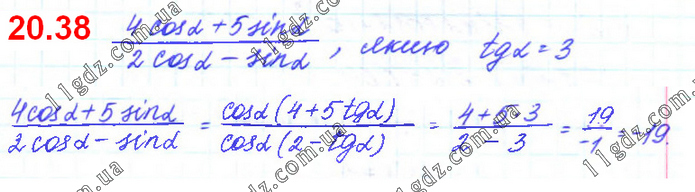 20.38 (4cosα+5sinα)/(2cosα-sinα), якщо tgα=3
(4cosα+5sinα)/(2cosα-sinα) = cosα(4+5tgα)/cosα(2-tgα) = (4+5·3)/(2-3) = 19/-1 = -19.
11gdz.com.ua
11gdz.com.ua
11gdz.com.ua
11gdz.com.ua